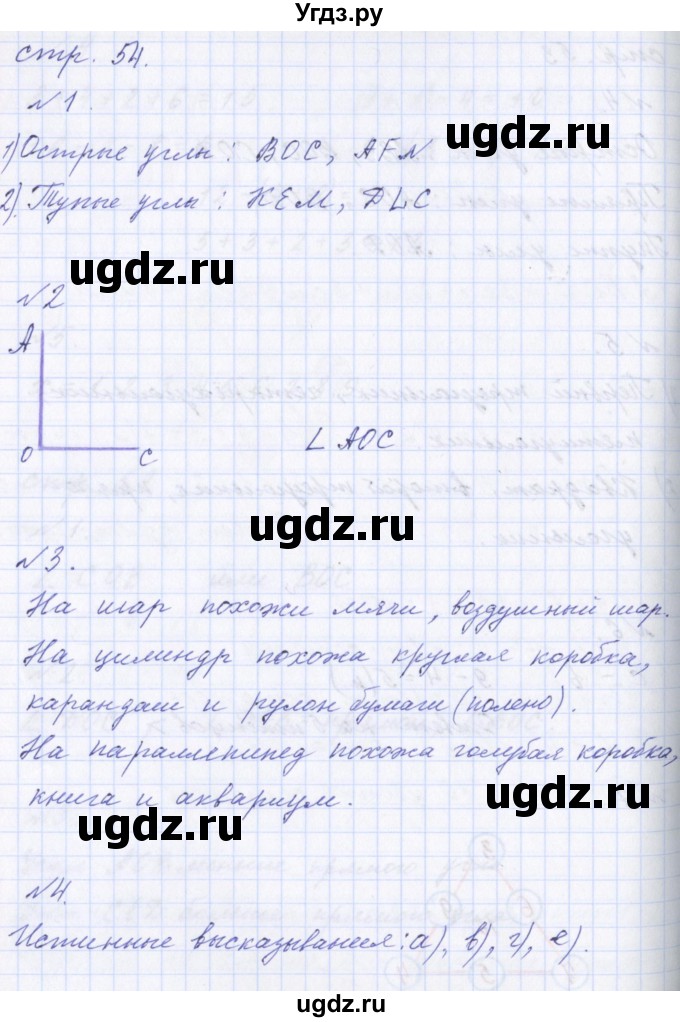 Угдз.ру
стр. 54.
№1.
1) Острые углы: BOC, AFN
2). Тупые углы: KEM, DLC
ugdz.ru
ugdz.ru
№2
A
O
C
∠ AOC
ugdz.ru
№3.
На шар похожи мячи, воздушный шар.
На цилиндр похожа круглая коробка,
карандаш и рулон бумаги (полено).
ugdz.ru
На параллепипед похожа голубая коробка,
книга и аквариум.
ugdz.ru
ugdz.ru
№4.
Истинные высказывания: а), в), г), е).
ugdz.ru